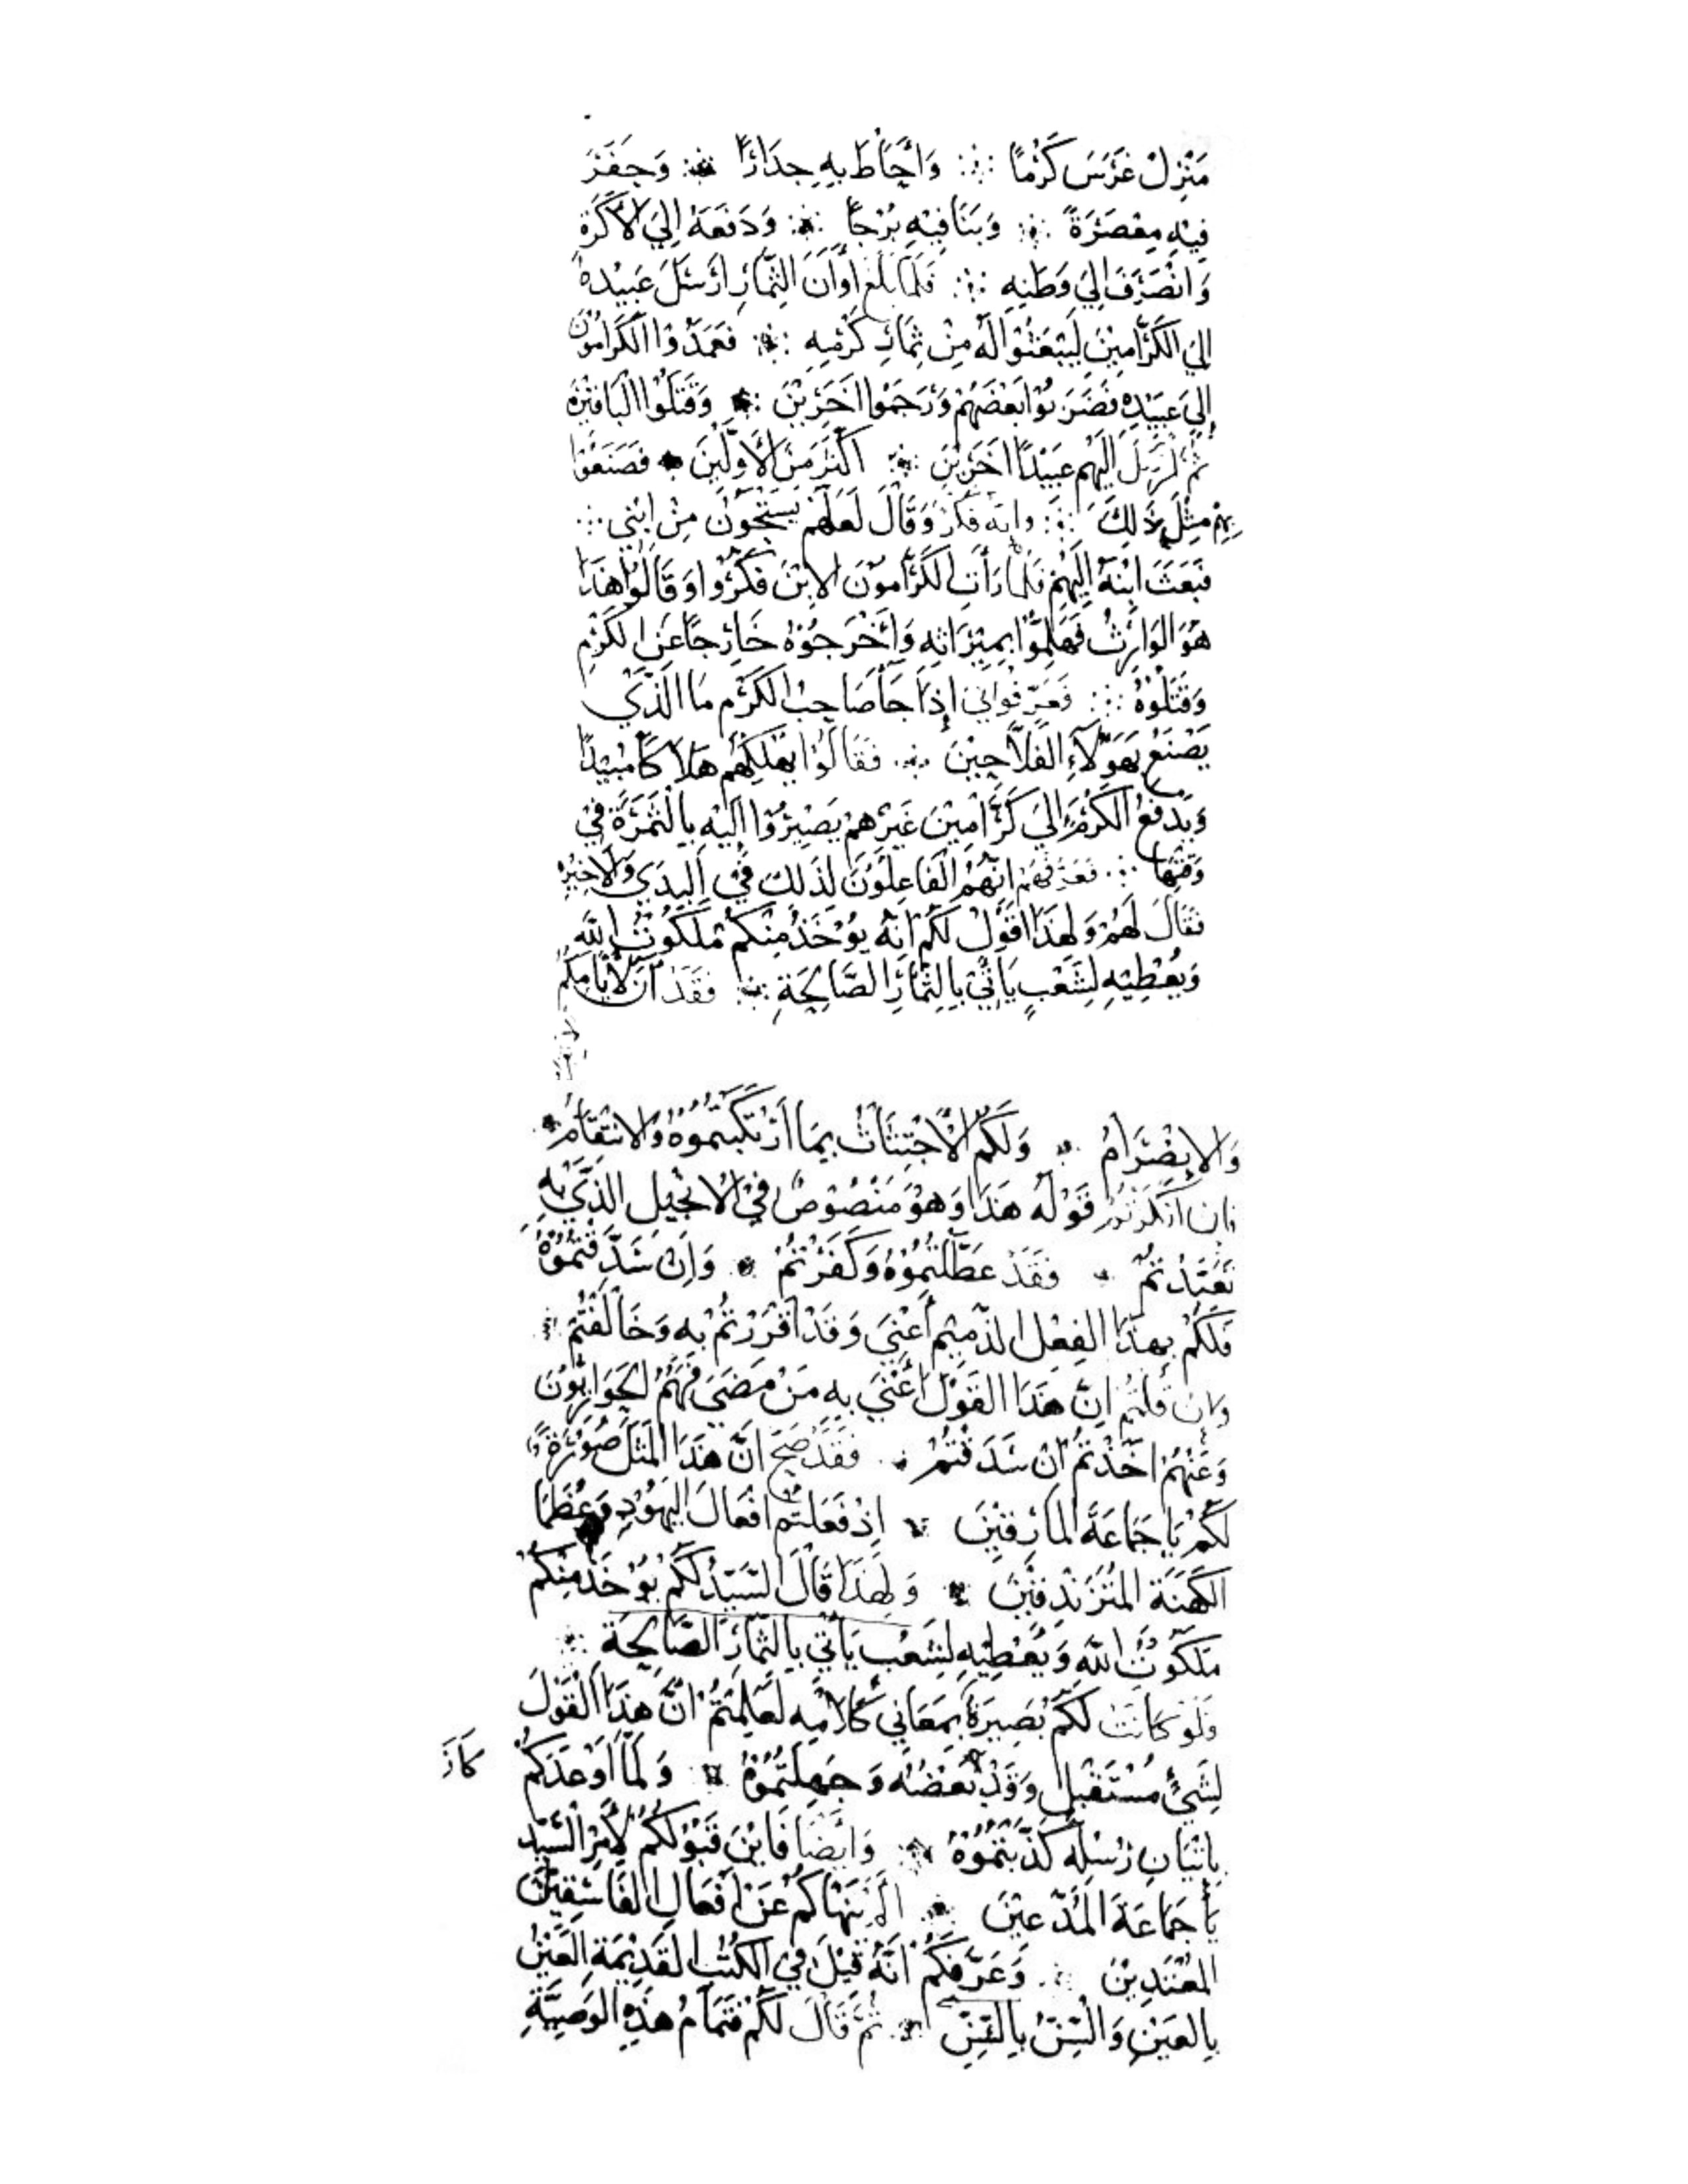 مَنْزِلْ غَرَسَ كَرْمًا ۞ وَأَحَاطَ بِهِ جِدَارًا ۞ وَحَفَرَ
فِيْهِ مِعْصَرَةً ۞ وَبَنَا فِيْهِ بُرْجًا ۞ وَدَفَعَهُ إِلَى الأَكَرَةِ
وَانْصَرَفَ إِلَي وَطَنِهِ ۞ فَلَمَّا بَلَغ أَوَانَ الثِّمَارِ أَرْسَلَ عَبِيْدهُ
إِلي الكَرَّامِيْنَ لِيَبْعَثُوْا لَهُ مِنْ ثِمَارِ كَرْمِهِ ۞ فَعَمَدُوْا الكَرَّامُوْن
إِلَى عَبِيْدِهِ فَضَرَبُوْا بَعْضَهُمْ وَرَجَمُوا اخَرِيْنَ ۞ وَقَتَلُوْا البَاقِيْن
ثُمَّ أَرْسَلَ إِلَيْهِم عَبِيْدًا اخَرِيْنَ ۞ أَكْثَرَ مِنَ الأَوَّلِيْنَ ۞ فَصَنَعُوْا
بِهِمْ مِثْلَ ذَلِكَ ۞ وانه فَكَّرَ وَقَالَ لَعَلَّهُمْ يَسْتَحُوْنَ مِنْ ابْنِي
فَبَعَثَ ابْنَهُ إِلَيْهِمْ فَلَمَّا رَأَتِ الكَرَّامُوْنَ الابْنَ فَكَّرُوا وَقَالُوْا هَذَا
هُوَ الوَارِثُ فَهَلِمُّوْا بِمِيْرَاثِهِ وَأَخْرَجُوْهُ خَارِجًا عَنِ الكَرْمِ
وَقَتَلُوْهُ ۞ فَعَرِّفُوْانِيْ إِذَا جَا صَاحِبُ الكَرْمِ مَا الَّذِي
يَصْنَعُ بِهَؤُلَاءِ الفَلَّاحِيْنَ ۞ فَقَالُوْا يُهْلِكُهُم هَلَاكًا مُبِيْدًا
وَيَدْفَعُ الكَرْمَ إِلَي كَرَّامِيْنَ غَيْرَهُمْ يَصِيْرُوْا إِلَيْهِ بِالثَّمَرَةِ فِي
وَقْتِهَا ۞ فَعَرَّفَهُمْ أَنَّهُمْ الفَاعِلُوْنَ لِذَلِكَ فِي البِدَي وَالاخِيْر
فقَالَ لَهُمْ وَلِهَذَا اقُوْلُ لَكُمْ انَّهُ يُؤْخَذُ مِنْكُمْ مَلَكُوْتُ اللَّه
وَيُعْطِيْهِ لِشَعْبٍ يَأتِي بِالثِّمَارِ الصَّالِحَةِ ۞ فَقَدْ آنَ لأَيَّامِكُم
وَالانْصِرَامُ ۞ وَلَكُم الاجْتِثَاثُ بِمَا ارْتَكَبْتُمُوْهُ وَالانْتِقَامُ
فان انكرتم قَوْلَهُ هَذَا وَهُوَ مَنْصُوْصٌ فِي الانْجِيْلِ الَّذِيْ بِهِ
تَعَبَّدْتُمْ ۞ فَقَدْ عَطَّلْتُمُوْهُ وَكَفَرْتُمْ ۞ وَإِنْ سَدَّقْتُمُوْهُ
فَلَكُمْ بِهَذَا الفِعْلِ الذَّمِيْمِ أَعْنَي وَقَدْ اقْرَرْتُمْ بِهِ وَخَالَفْتُمْ
وان قُلْتُمْ انَّ هَذَا القَوْلَ أَعْنَي بِهِ مَنْ مَضَي فَهُمُ الحَوَارِيُّوْنَ
وَعَنْهُمُ اخَّذْتُمْ انْ سَدَقْتُمْ ۞ فَقَدْ صَحَّ انَّ هَذَا المَثَلَ صُوْرَةً
لَكُمْ يَا جَمَاعَةَ المَارِقِيْنَ ۞ اِذْ فَعَلْتُم افْعَالَ اليَهُوْدِ وَعُظَمَا
الكَهَنَةِ المُتَزَنْدِقِيْنَ ۞ وَلِهَذَا قَالَ السَّيِّدُ لَكُمْ يُؤْخَذُ مِنْكُمْ
مَلَكُوْتُ اللَّهِ وَيُعْطِيْهِ لِشَعْبٍ يَأتِي بِالثِّمَارِ الصَّالِحَةِ ۞
ولَوْ كَانَتْ لَكُمْ بَصِيْرَةً بِمَعَانِي كَلَامِهِ لَعَلِمْتُمْ انَّ هَذَا القَوْلَ
لِشَيْءٍ مُسْتَقْبِلٍ وَقَدْ بَعْضُهُ وَجَهِلْتُمُوْهُ ۞ وَلَمَّا اَوْعَدَكُمْ كان
بِاتْيَانِ رُسُلِهِ كَذَّبْتُمُوْهُ ۞ وَايْضًا فَايْنَ قَبُوْلَكُمْ لأَمْرِ السَّيِّدِ
يَا جَمَاعَةَ المُدَّعِيْنَ ۞ الَمْ يَنْهَاكُمْ عَنْ أَفْعَالِ الفَاسِقِيْنَ
المُعْتَدِيْنَ ۞ وَعَرَّفَكُمْ انَّهُ قِيْلَ فِي الكُتُبِ القَدِيْمَةِ العَيْنُ
بِالعَيْنِ وَالسِّنُّ بِالسِّنِّ ۞ ثُمَّ قَالَ لَكُمْ فَتَمَامُ هَذِهِ الوَصِيَّةِ